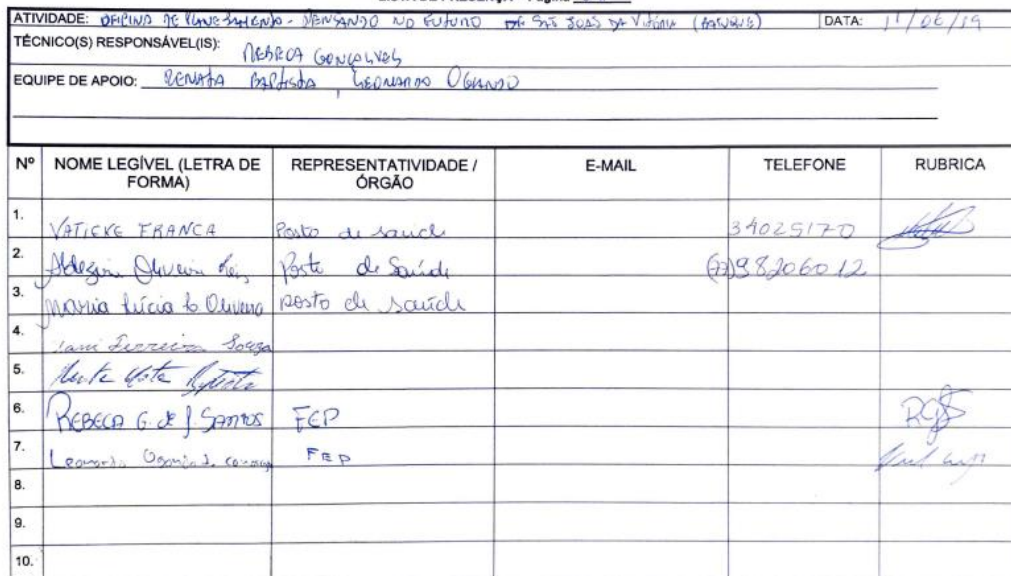 LISTA DE PRESENÇA - Página
ATIVIDADE: OFICINA DE PLANEJAMENTO - PENSANDO NO FUTURO DE SÃO JOÃO DA VITÓRIA (BATUQUE) DATA: 11/06/19
TÉCNICO(S) RESPONSÁVEL(IS): REBECA GONÇALVES
EQUIPE DE APOIO: RENATA BAPTISTA, LEONARDO OGANDO
Nº NOME LEGÍVEL (LETRA DE FORMA) REPRESENTATIVIDADE / ÓRGÃO E-MAIL TELEFONE RUBRICA
1. FRANCA Posto de saude 34025170
2. Oliveira Reis Posto de Saúde (77)98206012
3. Maria Lúcia Oliveira posto de saúde
4. Ferreira Souza
5.
6. REBECA G. de J. SANTOS FEP RGJS
7. Leonardo FEP
8.
9.
10.